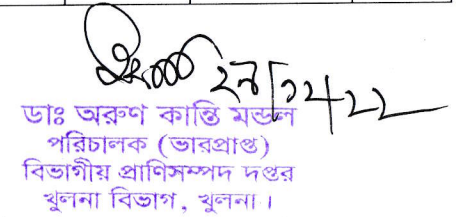 ডাঃ অরুণ কান্তি মন্ডল
পরিচালক (ভারপ্রাপ্ত)
বিভাগীয় প্রাণিসম্পদ দপ্তর
খুলনা বিভাগ, খুলনা।